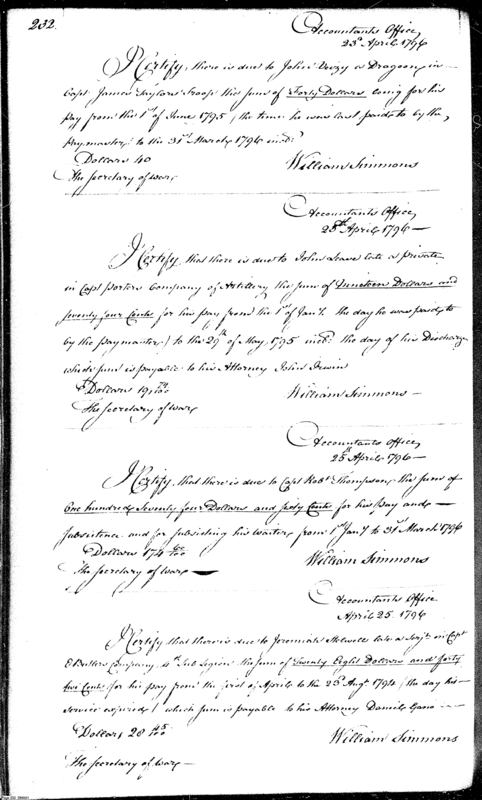 232.
Accountants Office
25th April 1796
I Certify, there is due to John a Dragoon in
Capt James Taylors Troop the sum of Forty Dollars being for his
pay from the 1st of June 1795 (the time he was last paid to by the
paymaster) to the 31st March 1796 incd.
Dollars 40
William Simmons
The Secretary of War
Accountants Office,
25th April 1796 —
I Certify that there is due to John late a private
in Capt Porters Company of Artillery the sum of Nineteen Dollars and
seventy four Cents for his pay from the 1st of Jany. (the day he was paid to
by the paymaster) to the 29th of May 1795 incd. the day of his Discharge
which sum is payable to his Attorney John Irwin
Dollars 19 74/100
William Simmons —
The Secretary of War
Accountants Office
25th April 1796 —
I Certify, that there is due to Capt Robt Thompson, the sum of
One hundred seventy four Dollars and sixty Cents for his pay and
subsistence and for subsisting his waiter from 1st Jany to 31st March 1796
Dollars 174 60/100
William Simmons
The Secretary of War —
Accountants Office
April 25. 1796
I Certify that there is due to Jeremiah late a Serjt in Capt
E Butlers Company 4th Sub Legion the sum of Twenty Eight Dollars and forty
five Cents for his pay from the first of April to the 25th Augt. 1794 (the day his
service expired) which sum is payable to his Attorney Daniel Gano —
Dollars 28 45/100
William Simmons
The Secretary of War —